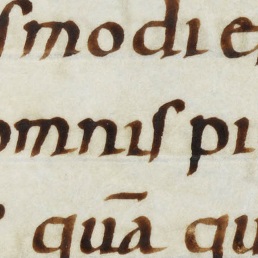 smodi e
omnis pi
quā qu